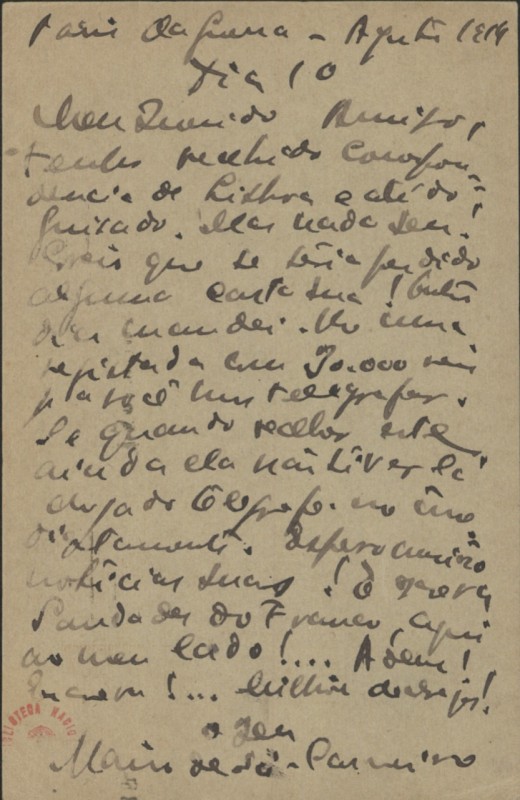 Paris da guerra - Agosto 1914
Dia 10
Meu Querido Amigo,
tenho recebido correspon-
dencia de Lisboa e até do
Guisado. Mas nada seu!
Creio que se teria perdido
alguma carta sua! Outro
dia mandei-lhe uma
registada com 70.000 reis
p'a você me telegrafar.
Se quando receber este
ainda ela não tiver lá
chegado telegrafe-me ime-
diatamente. Espero ancioso
noticias suas!
Saudades do Franco, aqui
ao meu lado!... Adeus!
Escreva!... Milhões de abraços!
o seu
Mario de Sá-Carneiro